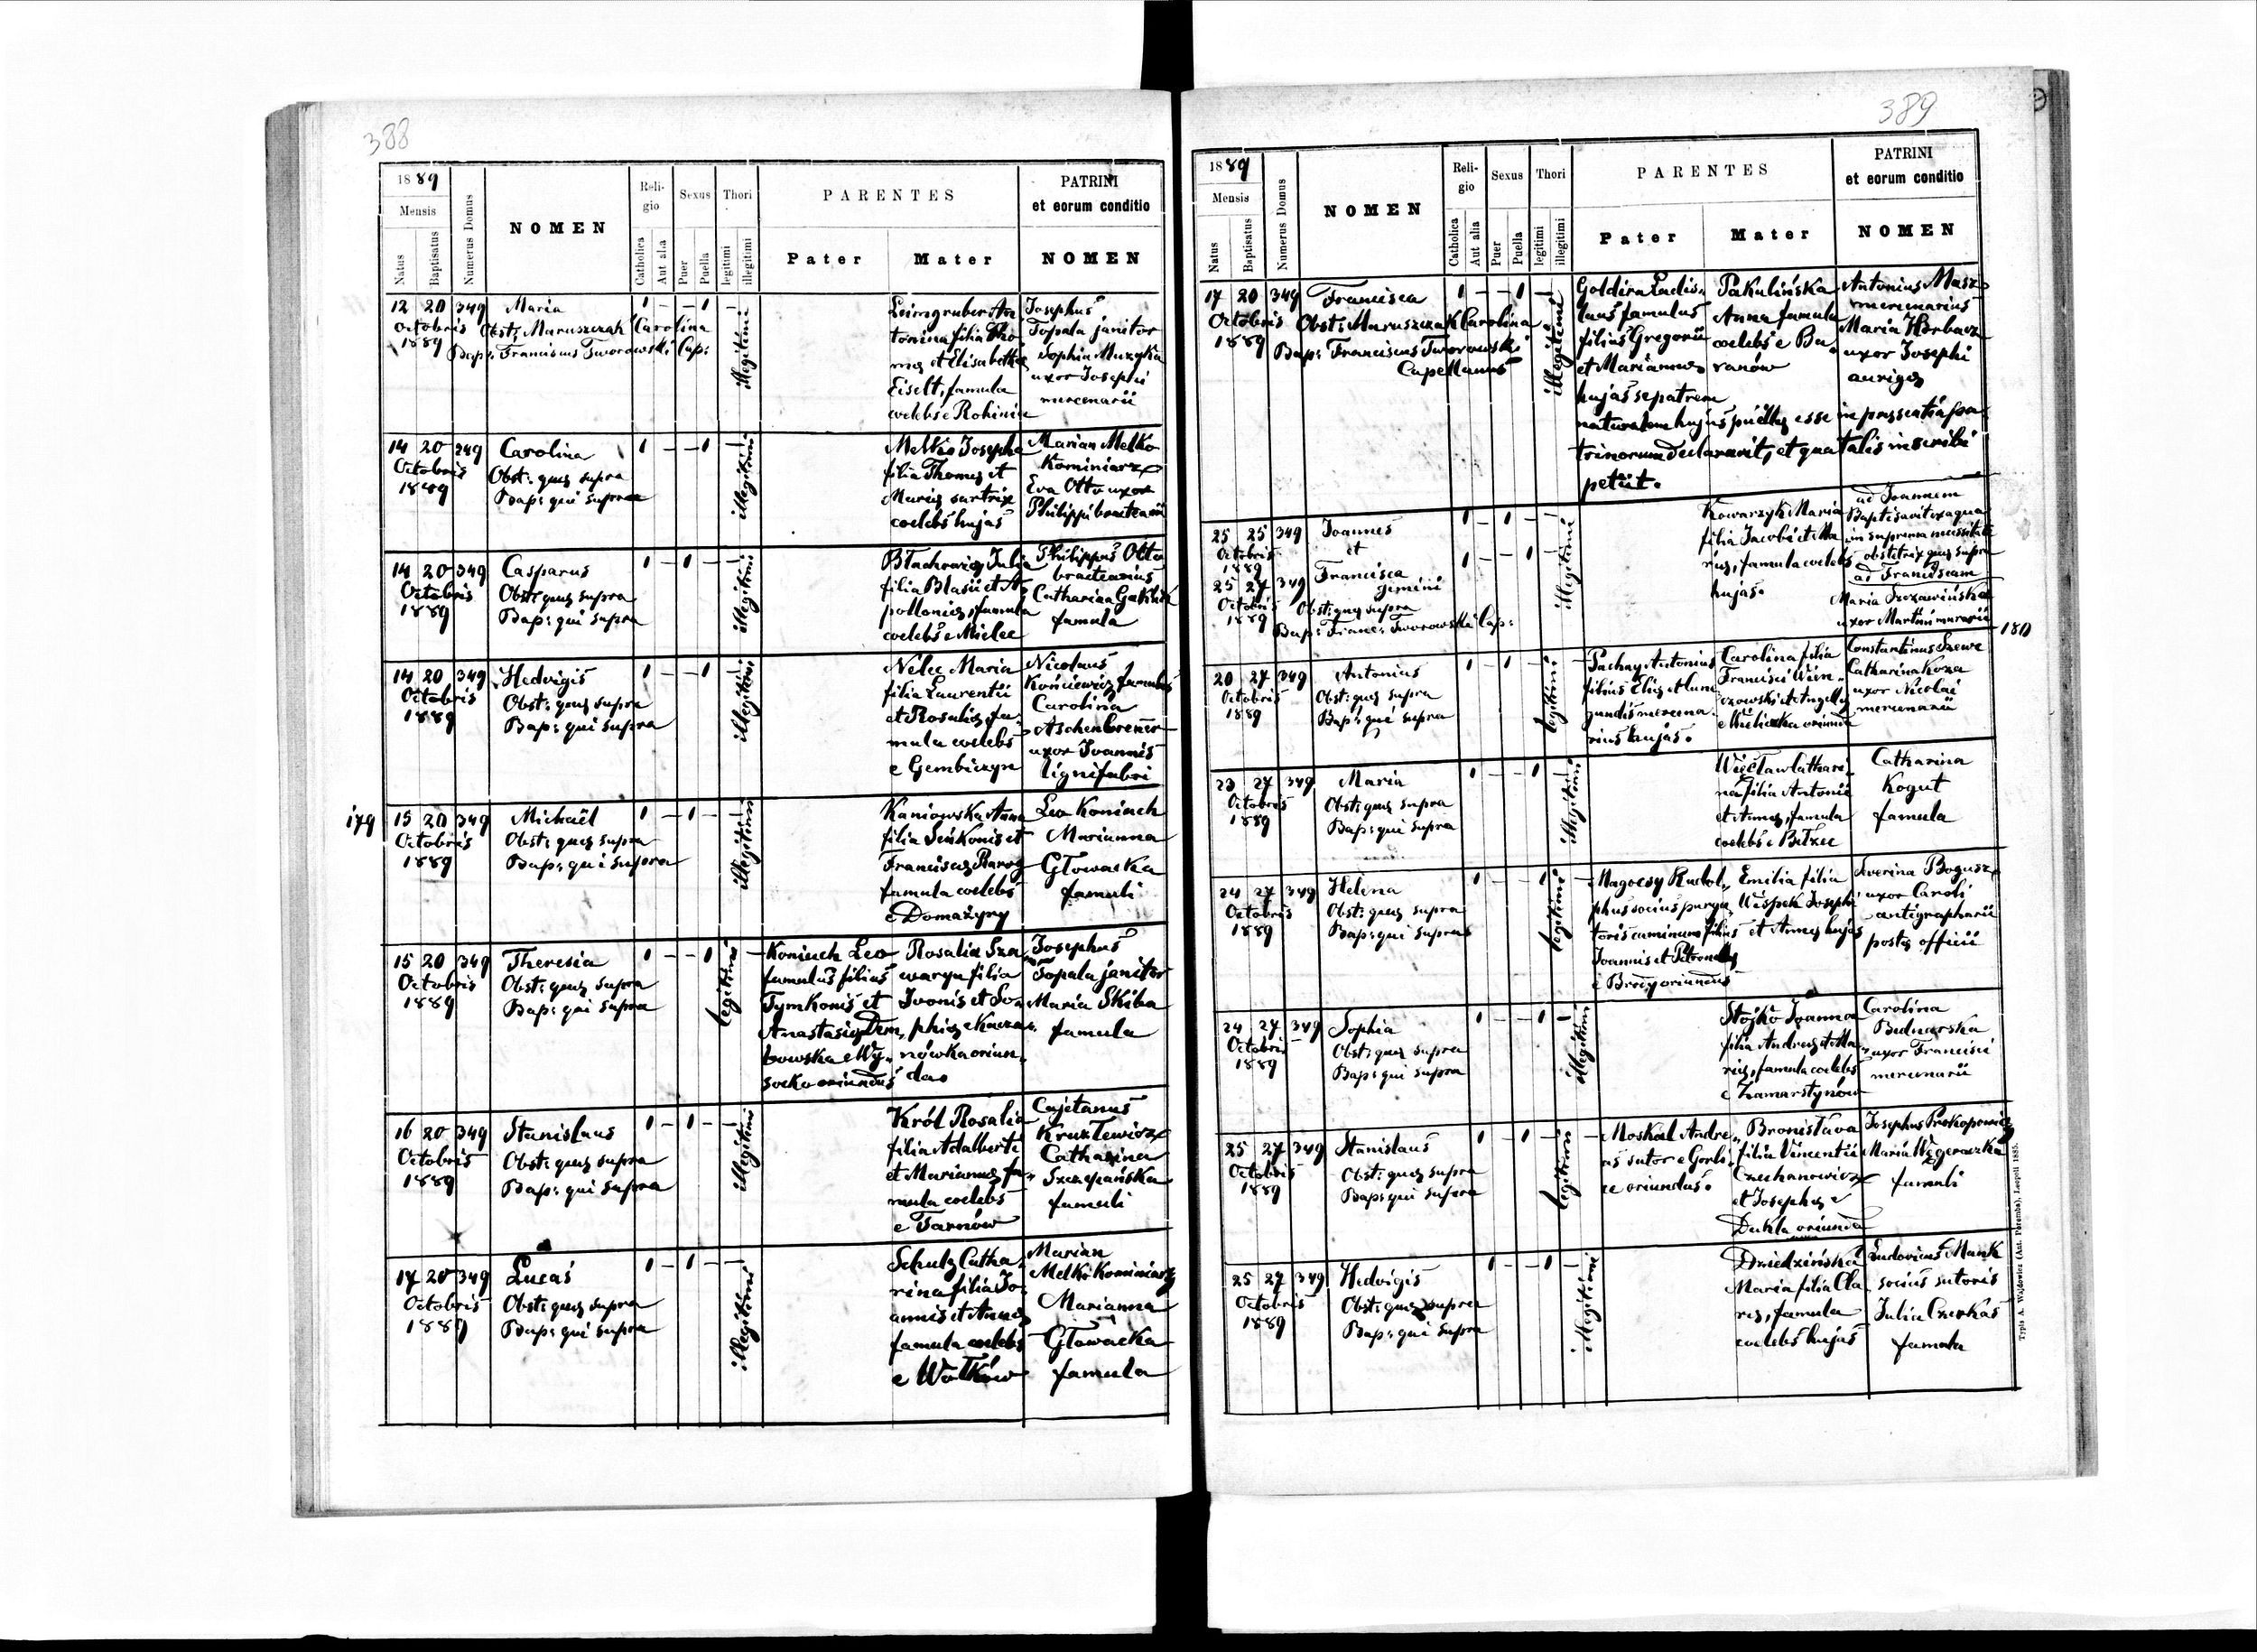 388
1889
Mensis
Natus
Baptisatus
Numerus Domus
NOMEN
Reli-
gio
Catholica
Aut alia
Sexus
Puer
Puella
Thori
legitimi
illegitimi
PARENTES
Pater
Mater
PATRINI
et eorum conditio
NOMEN
12 20 349 Maria 1 – – 1 –
Octobris
1889
Obst: Maruszczak Carolina
Bap: Franciscus Tworowski Cap:
illegitimi
Leimgruber An
tonina filia Tho
mæ et Elisabethæ
Eiselt, famula
coelebs e Rohinia
Josephus
Topala janitor
Sophia Muzyka
uxor Josephi
mercenarii
14 20 349 Carolina 1 – – 1 –
Octobris
1889
Obst: quæ supra
Bap: qui supra
illegitimi
Melko Josepha
filia Thomæ et
Mariæ sartrix
coelebs hujas
Marian Melko
Kominiarz
Eva Otto uxor
Philippi bractearii
14 20 349 Casparus 1 – 1 – –
Octobris
1889
Obst: quæ supra
Bap: qui supra
illegitimi
Błachowicz Julia
filia Blasii et A
polloniæ, famula
coelebs e Mielec
Philippus Otto
bractearius
Catharina
famula
14 20 349 Hedvigis 1 – – 1 –
Octobris
1889
Obst: quæ supra
Bap: qui supra
illegitimi
Nelec Maria
filia Laurentii
et Rosaliæ, fa-
mula coelebs
e Gembiczyn
Nicolaus
Końciewicz famulus
Carolina
Aschenbrenner
uxor Joannis
lignifabri
179
15 20 349 Michaël 1 – 1 – –
Octobris
1889
Obst: quæ supra
Bap: qui supra
illegitimi
Kaniowska Anna
filia Seńkonis et
Franciscæ Baroz
famula coelebs
e Domażyry
Leo Koniuch
Marianna
Głowacka
famuli
15 20 349 Theresia 1 – – 1
Octobris
1889
Obst: quæ supra
Bap: qui supra
legitimi
Koniuch Leo
famulus filius
Tymkonis et
Anastasiæ Dem
bowska e Wy-
socko oriundus
Rosalia Sza
waryn filia
Ivonis et So
phiæ e Kacza
nówka oriun
da
Josephus
Topala janitor
Maria Skiba
famula
16 20 349 Stanislaus 1 – 1 – –
Octobris
1889
Obst: quæ supra
Bap: qui supra
illegitimi
Król Rosalia
filia Adalberti
et Mariannæ fa-
mula coelebs
e Tarnów
Cajetanus
Kruszlewicz
Catharina
Szczepańska
famuli
17 20 349 Lucas 1 – 1 – –
Octobris
1889
Obst: quæ supra
Bap: qui supra
illegitimi
Schulz Catha-
rina filia Jo
annis et Annæ
famula coelebs
e Wołków
Marian
Melko Kominiarz
Marianna
Głowacka
famula
389
1889
Mensis
Natus
Baptisatus
Numerus Domus
NOMEN
Reli-
gio
Catholica
Aut alia
Sexus
Puer
Puella
Thori
legitimi
illegitimi
PARENTES
Pater
Mater
PATRINI
et eorum conditio
NOMEN
17 20 349 Francisca 1 – – 1 –
Octobris
1889
Obst: Maruszczak Carolina
Bap: Franciscus Tworowski
Capellanus
illegitimi
Goldira Ladis-
laus famulus
filius Gregorii
et Mariannæ
hujas se patrem
Pakulińska
Anna famula
coelebs e Ba
ranów
naturalem hujus puellæ esse in præsentia pa
trinorum declaravit, et qua talis inscribi
petiit.
Antonius Masz
mercenarius
Maria Horbacz
uxor Josephi
aurigæ
25 25 349 Joannes 1 – 1 – –
Octobris
1889
et
25 27 349 Francisca 1 – – 1 –
gemini
Octobris
1889
Obst: quæ supra
Bap: Franc: Tworowski Cap:
illegitimi
Kowarzyk Maria
filia Jacobi et Ma
riæ, famula coelebs
hujas.
ad Joannem
Baptisavit ex aqua
in suprema necessitate
obstetrix quæ supra
ad Franciscam
Maria Trzawińska
uxor Martini murarii
180
20 27 349 Antonius 1 – 1 –
Octobris
1889
Obst: quæ supra
Bap: qui supra
legitimi
Pachay Antonius
filius Eliæ et Cune
gundis mercena-
rius hujas.
Carolina filia
Francisci Wien-
czowski et Angelæ
e Wieliczka oriunda
Constantinus Szewc
Catharina Koza
uxor Nicolai
mercenarii
23 27 349 Maria 1 – – 1 –
Octobris
1889
Obst: quæ supra
Bap: qui supra
illegitimi
Więcław Cathari
na filia Antonii
et Annæ, famula
coelebs e Bełzec
Catharina
Kogut
famula
24 27 349 Helena 1 – – 1
Octobris
1889
Obst: quæ supra
Bap: qui supra
legitimi
Magocsy Rudol
phus socius purga
toris caminum filius
Joannis et Petronellæ
e Brody oriundus
Emilia filia
Wispek Josephi
et Annæ hujas
Severina Bogusz
uxor Caroli
antigrapharii
postæ officii
24 27 349 Sophia 1 – – 1 –
Octobris
1889
Obst: quæ supra
Bap: qui supra
illegitimi
Stojko Joanna
filia Andreæ et Ma
riæ, famula coelebs
e Zamarstynów
Carolina
Bednarska
uxor Francisci
mercenarii
25 27 349 Stanislaus 1 – 1 –
Octobris
1889
Obst: quæ supra
Bap: qui supra
legitimi
Moskal Andre
as sutor e Gorli
ce oriundus.
Bronislava
filia Vincentii
Czechanowicz
et Josephæ e
Dukla oriunda
Josephus Prokopowicz
Maria Węgeracka
famuli
25 27 349 Hedvigis 1 – – 1 –
Octobris
1889
Obst: quæ supra
Bap: qui supra
illegitimi
Dziedzińska
Maria filia Cla
ræ, famula
coelebs hujas
Ludovicus Munk
socius sutoris
Julia Czerkas
famula
Typis A. Wajdowicz (Ant. Poremba), Leopoli 1885.